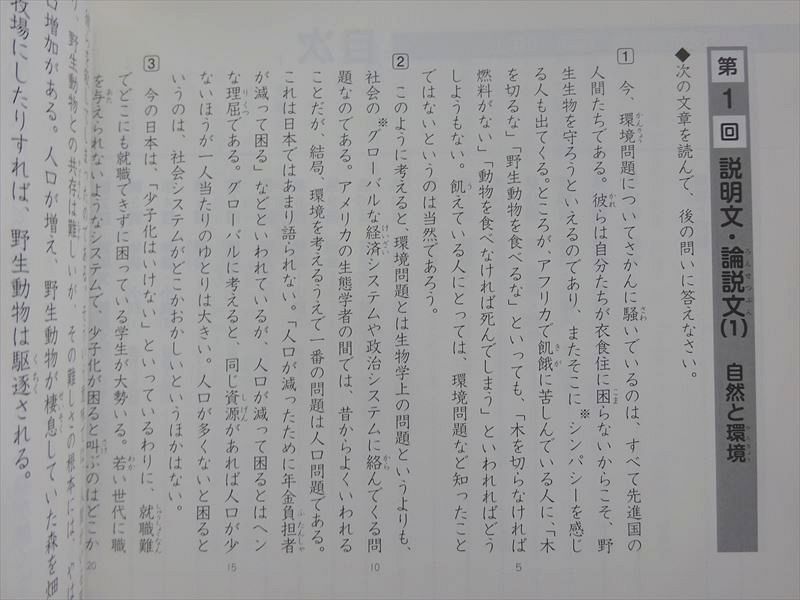 第1回 説明文・論説文(1) 自然と環境
◆次の文章を読んで、後の問いに答えなさい。
1 今、環境問題についてさかんに騒いでいるのは、すべて先進国の
人間たちである。彼らは自分たちが衣食住に困らないからこそ、野
生生物を守ろうといえるのであり、またそこに※シンパシーを感じ
る人も出てくる。ところが、アフリカで飢餓に苦しんでいる人に、「木
を切るな」「野生動物を食べるな」といっても、「木を切らなければ
燃料がない」「動物を食べなければ死んでしまう」といわれればどう
しようもない。飢えている人にとっては、環境問題など知ったこと
ではないというのは当然であろう。
2 このように考えると、環境問題とは生物学上の問題というよりも、
社会の※グローバルな経済システムや政治システムに絡んでくる問
題なのである。アメリカの生態学者の間では、昔からよくいわれる
ことだが、結局、環境を考えるうえで一番の問題は人口問題である。
これは日本ではあまり語られない。「人口が減ったために年金負担者
が減って困る」などといわれているが、人口が減って困るとはヘン
な理屈である。グローバルに考えると、同じ資源があれば人口が少
ないほうが一人当たりのゆとりは大きい。人口が多くないと困ると
いうのは、社会システムがどこかおかしいというほかはない。
3 今の日本は、「少子化はいけない」といっているわりに、就職難
でどこにも就職できずに困っている学生が大勢いる。若い世代に職
を与えられないようなシステムで、少子化が困ると叫ぶのはどこか
野生動物との共存は難しいが、その難しさの根本には、
増加がある。人口が増え、野生動物が棲息していた森を畑
牧場にしたりすれば、野生動物は駆逐される。
5
10
15
20